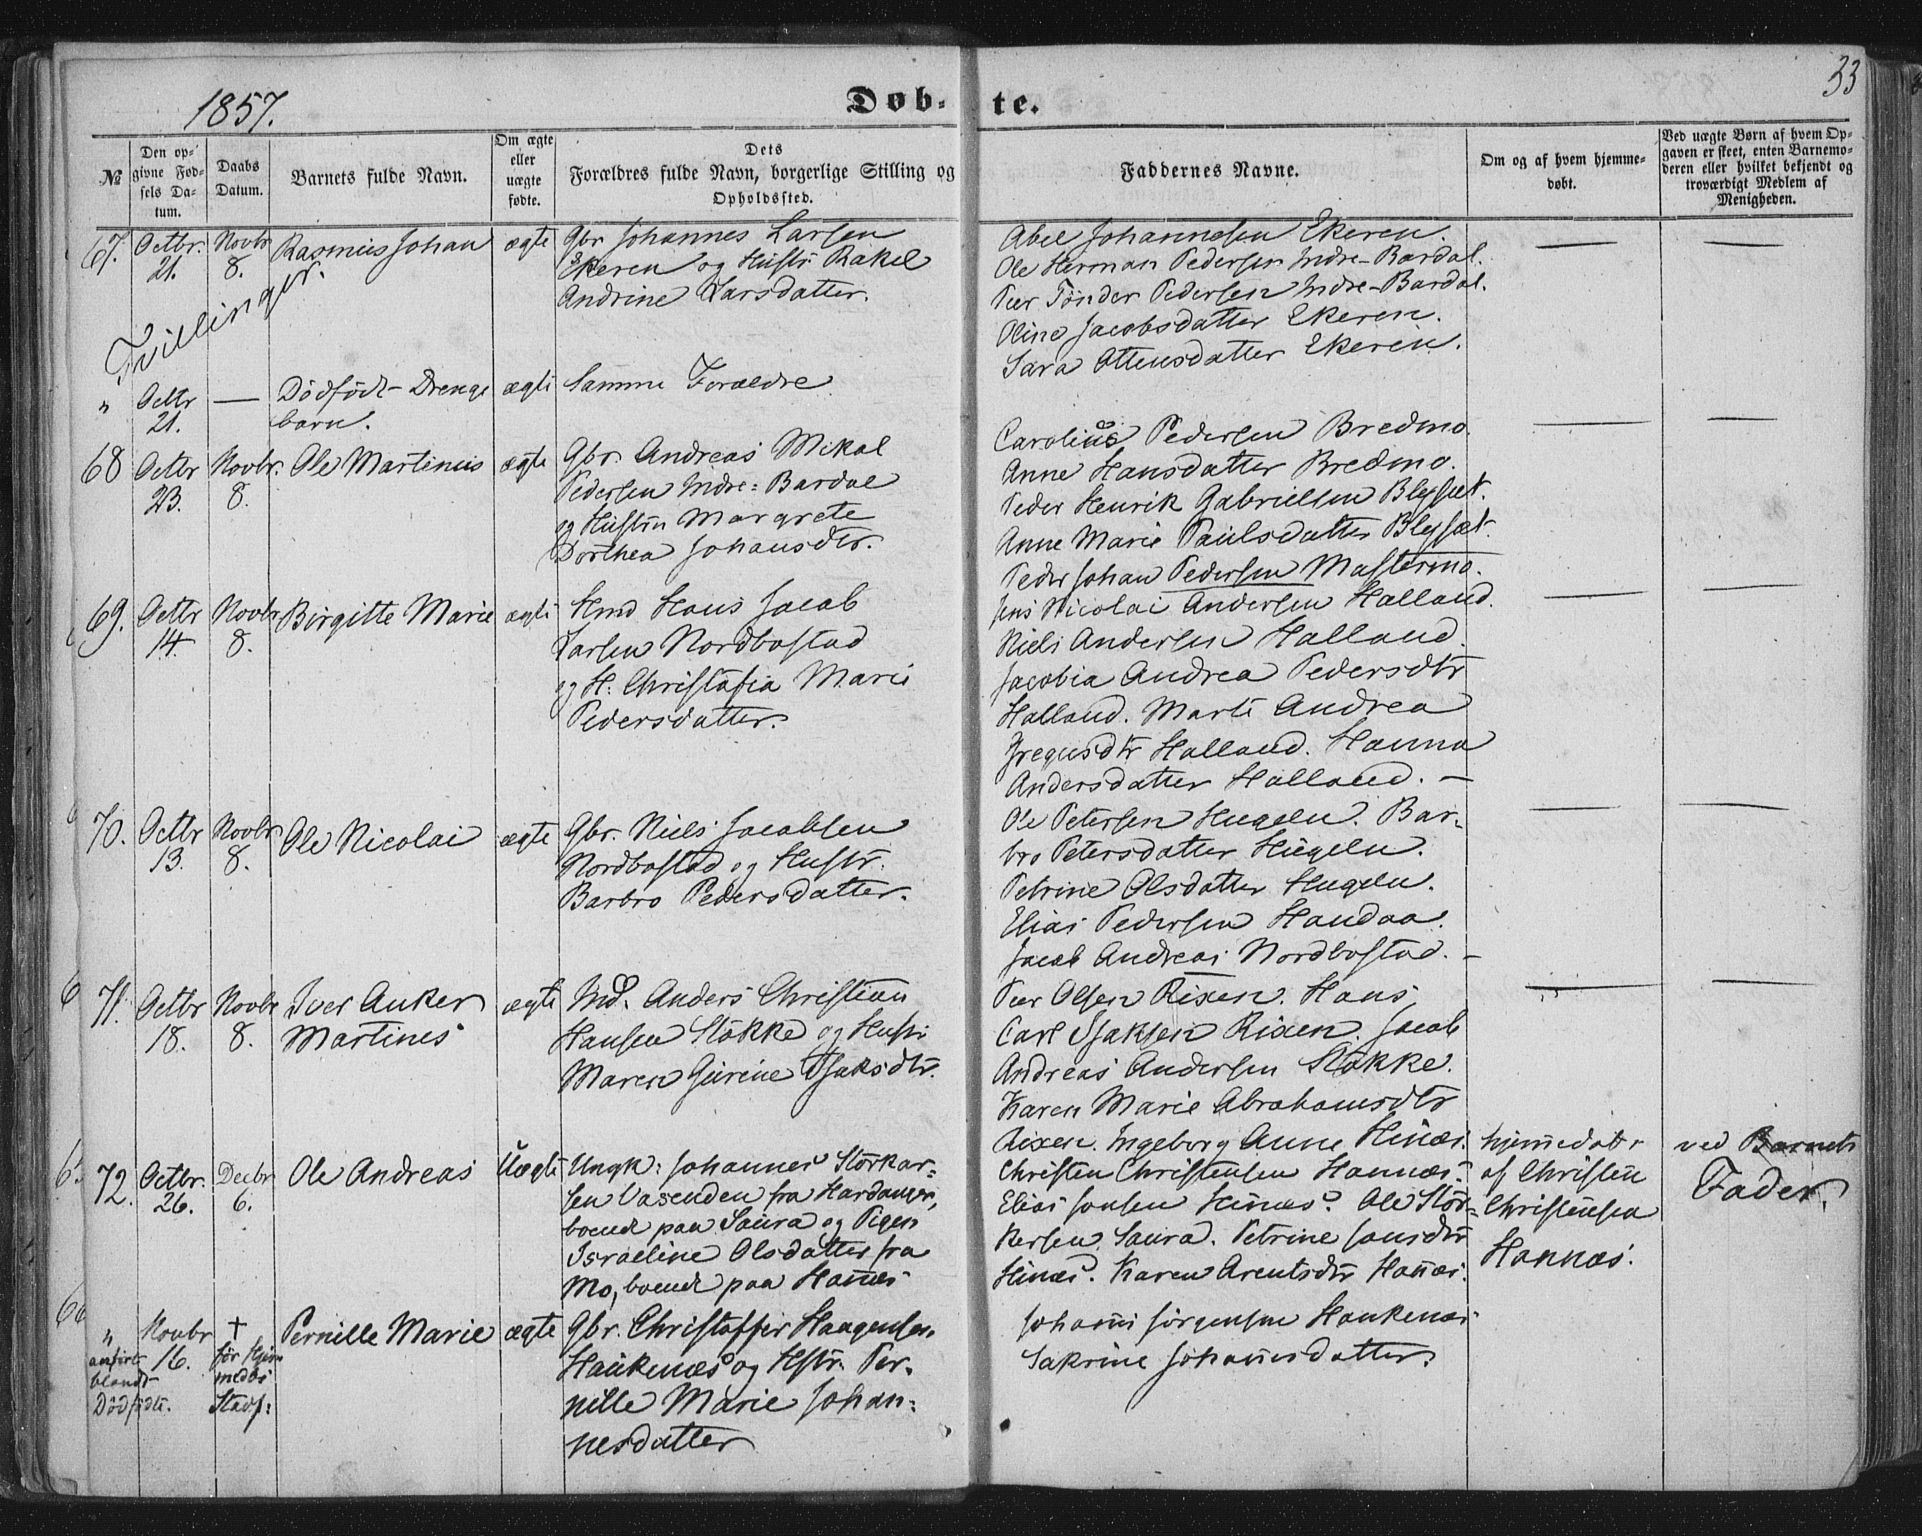 1857.
Døb-
te.
33
№
Den op-
givne Fød-
sels Da-
tum.
Daabs
Datum.
Barnets fulde Navn.
Om ægte
eller
uægte
fødte.
Dets
Forældres fulde Navn, borgerlige Stilling og
Opholdssted.
Faddernes Navne.
Om og af hvem hjemme-
døbt.
Ved uægte Børn af hvem Op-
gaven er skeet, enten Barnemo-
deren eller hvilket bekjendt og
troværdigt Medlem af
Menigheden.
67.
Octbr.
21.
Novbr
8.
Rasmus Johan
ægte
Gbr Johannes Larsen
Ekeren og Hustr. Rakel
Andrine Larsdatter.
Abel Johannesen Ekeren.
Ole Herman Pedersen Indre-Bardal.
Peer Tønder Pedersen Indre-Bardal.
Oline Jacobsdatter Ekeren.
Sara Ottensdatter Ekeren.
Tvillinger.
"
Octbr
21.
—
Dødfødt Drenge
barn.
ægte
Samme Forældre
68
Octbr
23.
Novbr.
8.
Ole Martinus
ægte
Gbr. Andreas Mikal
Pedersen Indre-Bardal
og Hustru Margrete
Dorthea Johansdtr.
Carolius Pedersen Bredmo.
Anne Hansdatter Bredmo.
Peder Henrik Gabrielsen Blegsæt.
Anne Marie Paulsdatter Blegsæt.
Peder Johan Pedersen Mastermo.
69.
Octbr
14.
Novbr
8.
Birgitte Marie
ægte
Hmd Hans Jacob
Larsen Nordbostad
og H: Christofia Marie
Pedersdatter.
Jens Nicolai Andersen Halland.
Niels Andersen Halland.
Jacobia Andrea Pedersdtr
Halland. Marte Andrea
Gregusdtr Halland. Hanna
Andersdatter Halland. —
70.
Octbr
13.
Novbr
8.
Ole Nicolai
ægte
Gbr. Niels Jacobsen
Nordbostad og Hustr.
Barbro Pedersdatter.
Ole Petersen Hugeln. Bar-
bro Petersdatter Hugeln.
Petrine Olsdatter Hugeln.
Elias Pedersen Handaa.
Jacob Andreas Nordbostad. -
71.
Octbr
18.
Novbr
8.
Iver Anker
Martines
ægte
Ind. Anders Christian
Hansen Stokke og Hustr
Maren Gurine Isaksdtr.
Peer Olsen Rixen. Hans
Carl Isaksen Rixen. Jacob
Andreas Andersen Stokke.
Karen Marie Abrahamsdtr
Rixen. Ingeborg Anne Hinæs.
72.
Octbr.
26.
Decbr
6.
Ole Andreas
Uægte
Ungk: Johannes Storkar-
sen Vasenden fra Hardanger,
boende paa Saura og Pigen
Israeline Olsdatter fra
Mo, boende paa Hanæs
Christen Christensen Hannæs.
Elias Jonsen Hinæs. Ole Stor-
kersen Saura. Petrine Jonsdtr
Hinæs. Karen Arentsdtr Hanæs.
hjemmedøbt
af Christen
Christensen
Hannæs.
ved Barnets
Fader.
"
anført
blandt
Dødfødte.
Novbr
16.
†
før Hjem
medbs
Stadf:
Pernille Marie
ægte
Gbr. Christoffer Haagensen
Haukenæs og Hstr. Per-
nille Marie Johan-
nesdatter
Johannes Jørgensen Haukenæs
Sakrine Johannesdatter.